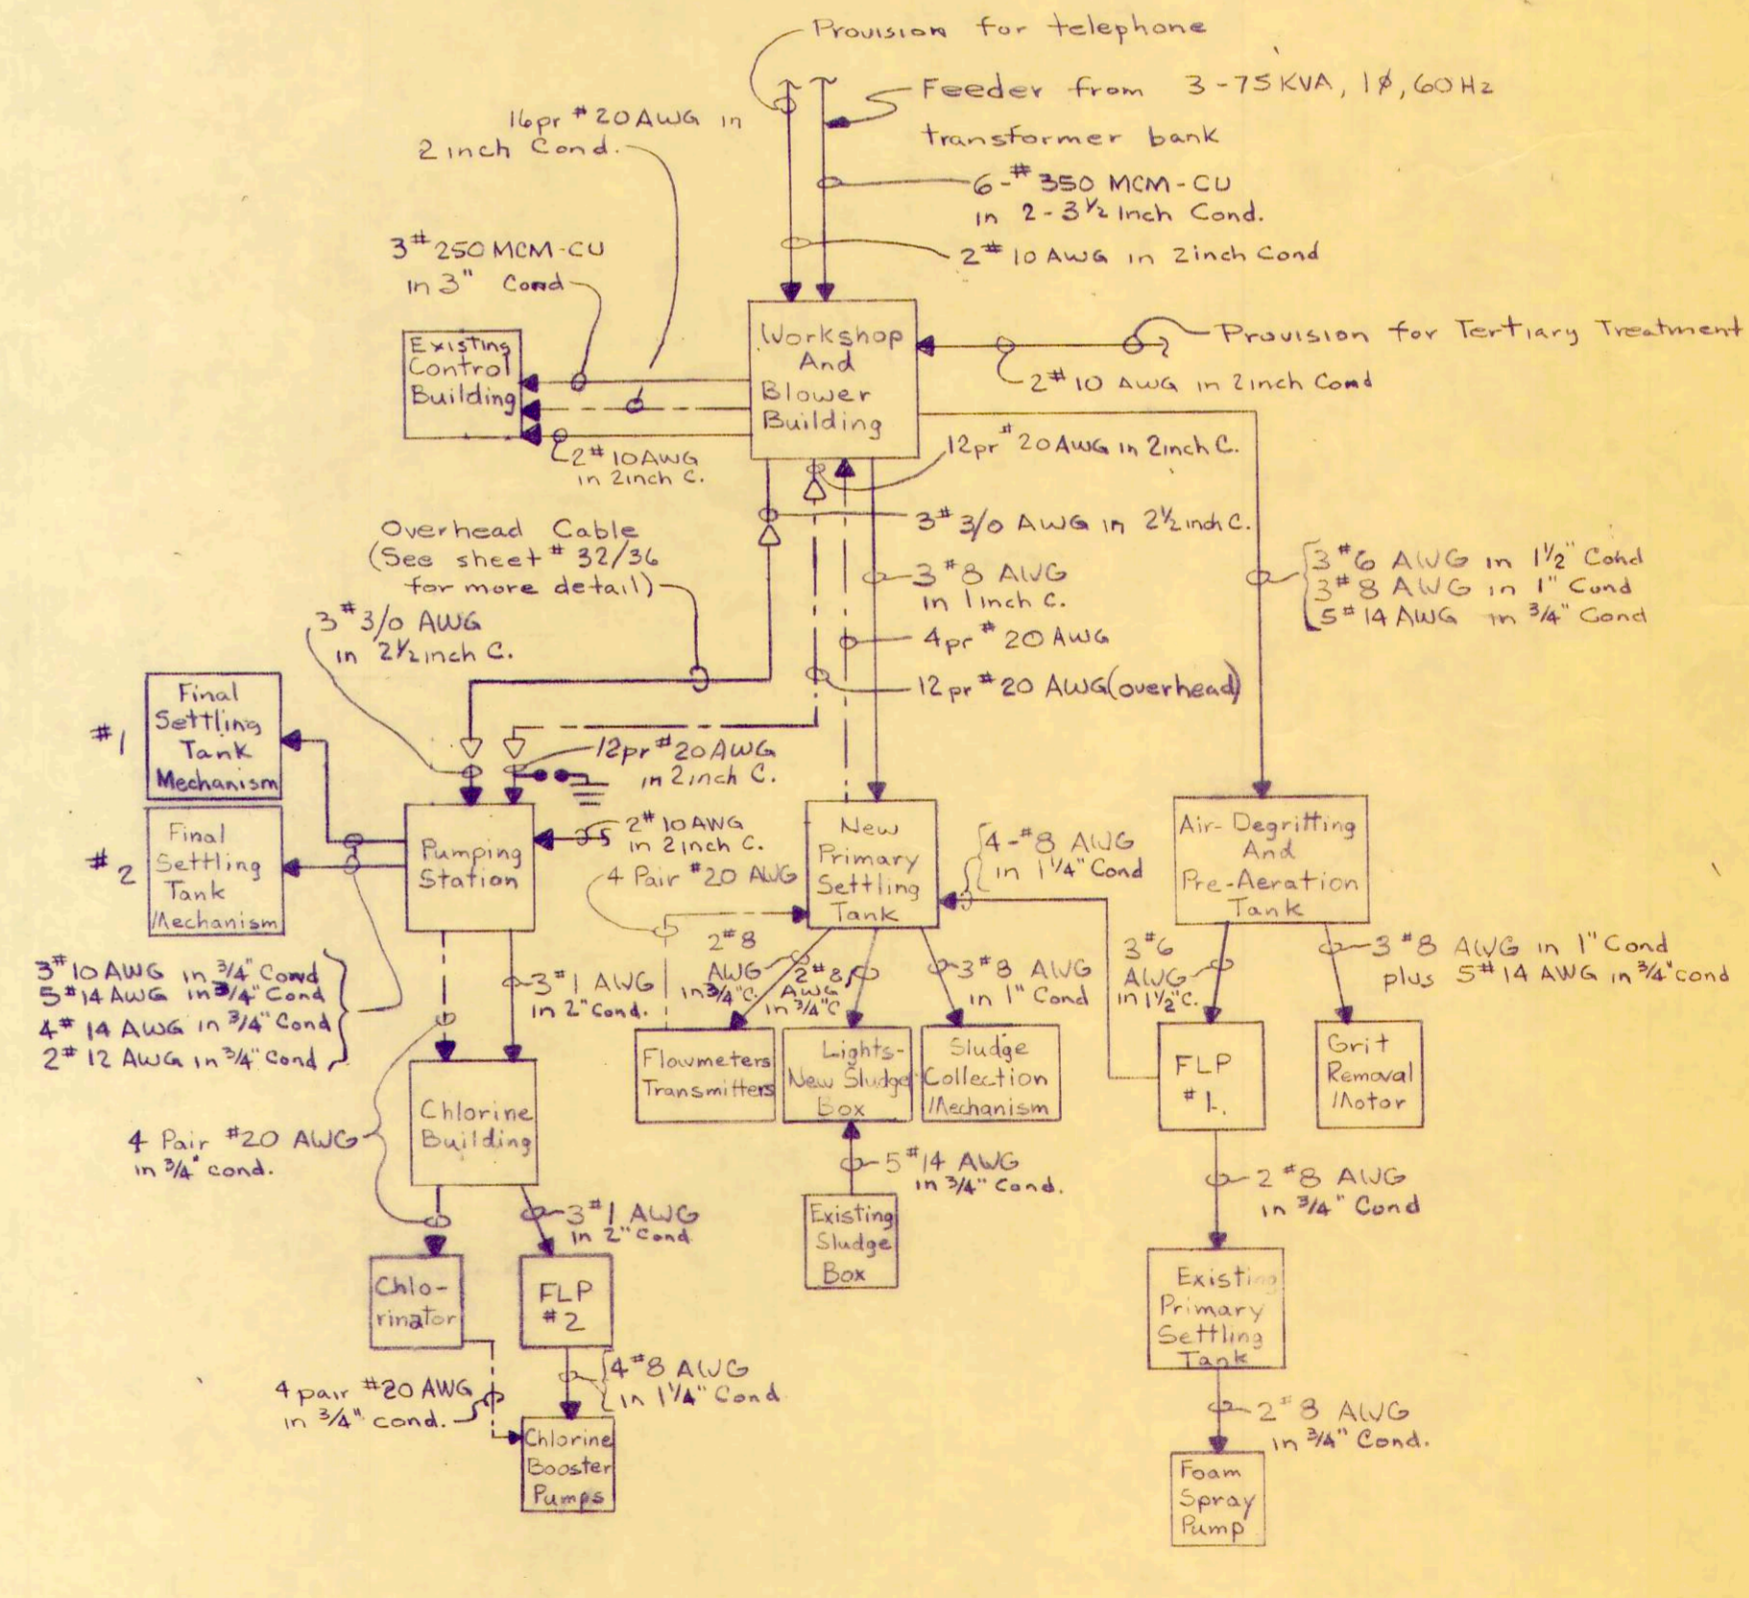 Provision for telephone
Feeder from 3-75KVA, 1ϕ, 60Hz
transformer bank
16pr #20AWG in
2 inch Cond.
6-#350 MCM-CU
in 2-3½ Inch Cond.
2#10 AWG in 2inch Cond
3#250MCM-CU
in 3" Cond
Existing
Control
Building
Workshop
And
Blower
Building
Provision for Tertiary Treatment
2#10 AWG in 2inch Cond
2#10AWG
in 2inch C.
12pr #20AWG in 2inch C.
3#3/0 AWG in 2½inch C.
Overhead Cable
(See sheet #32/36
for more detail)
3#8 AWG
in 1inch C.
3#6 AWG in 1½" Cond
3#8 AWG in 1" Cond
5#14 AWG in ¾" Cond
3#3/0 AWG
in 2½inch C.
4pr #20 AWG
12pr #20 AWG(overhead)
#1
Final
Settling
Tank
Mechanism
12pr #20AWG
in 2inch C.
#2
Final
Settling
Tank
Mechanism
Pumping
Station
2#10AWG
in 2inch C.
4 Pair #20 AWG
New
Primary
Settling
Tank
4-#8 AWG
in 1¼" Cond
Air-Degritting
And
Pre-Aeration
Tank
3#10 AWG in ¾" Cond
5#14 AWG in ¾" Cond
4#14 AWG in ¾" Cond
2#12 AWG in ¾" Cond
3#1 AWG
in 2" Cond.
2#8
AWG
in ¾"C.
2#8
AWG
in ¾"C
3#8 AWG
in 1" Cond
3#6
AWG
in 1½"C.
3#8 AWG in 1" Cond
plus 5#14 AWG in ¾" cond
Flowmeters
Transmitters
Lights-
New Sludge
Box
Sludge
Collection
Mechanism
FLP
#1.
Grit
Removal
Motor
Chlorine
Building
4 Pair #20 AWG
in ¾" cond.
5#14 AWG
in ¾" Cond.
2#8 AWG
in ¾" Cond
3#1 AWG
in 2" Cond
Existing
Sludge
Box
Chlo-
rinator
FLP
#2
Existing
Primary
Settling
Tank
4#8 AWG
in 1¼" Cond
4 pair #20 AWG
in ¾" cond.
2#8 AWG
in ¾" Cond.
Chlorine
Booster
Pumps
Foam
Spray
Pump